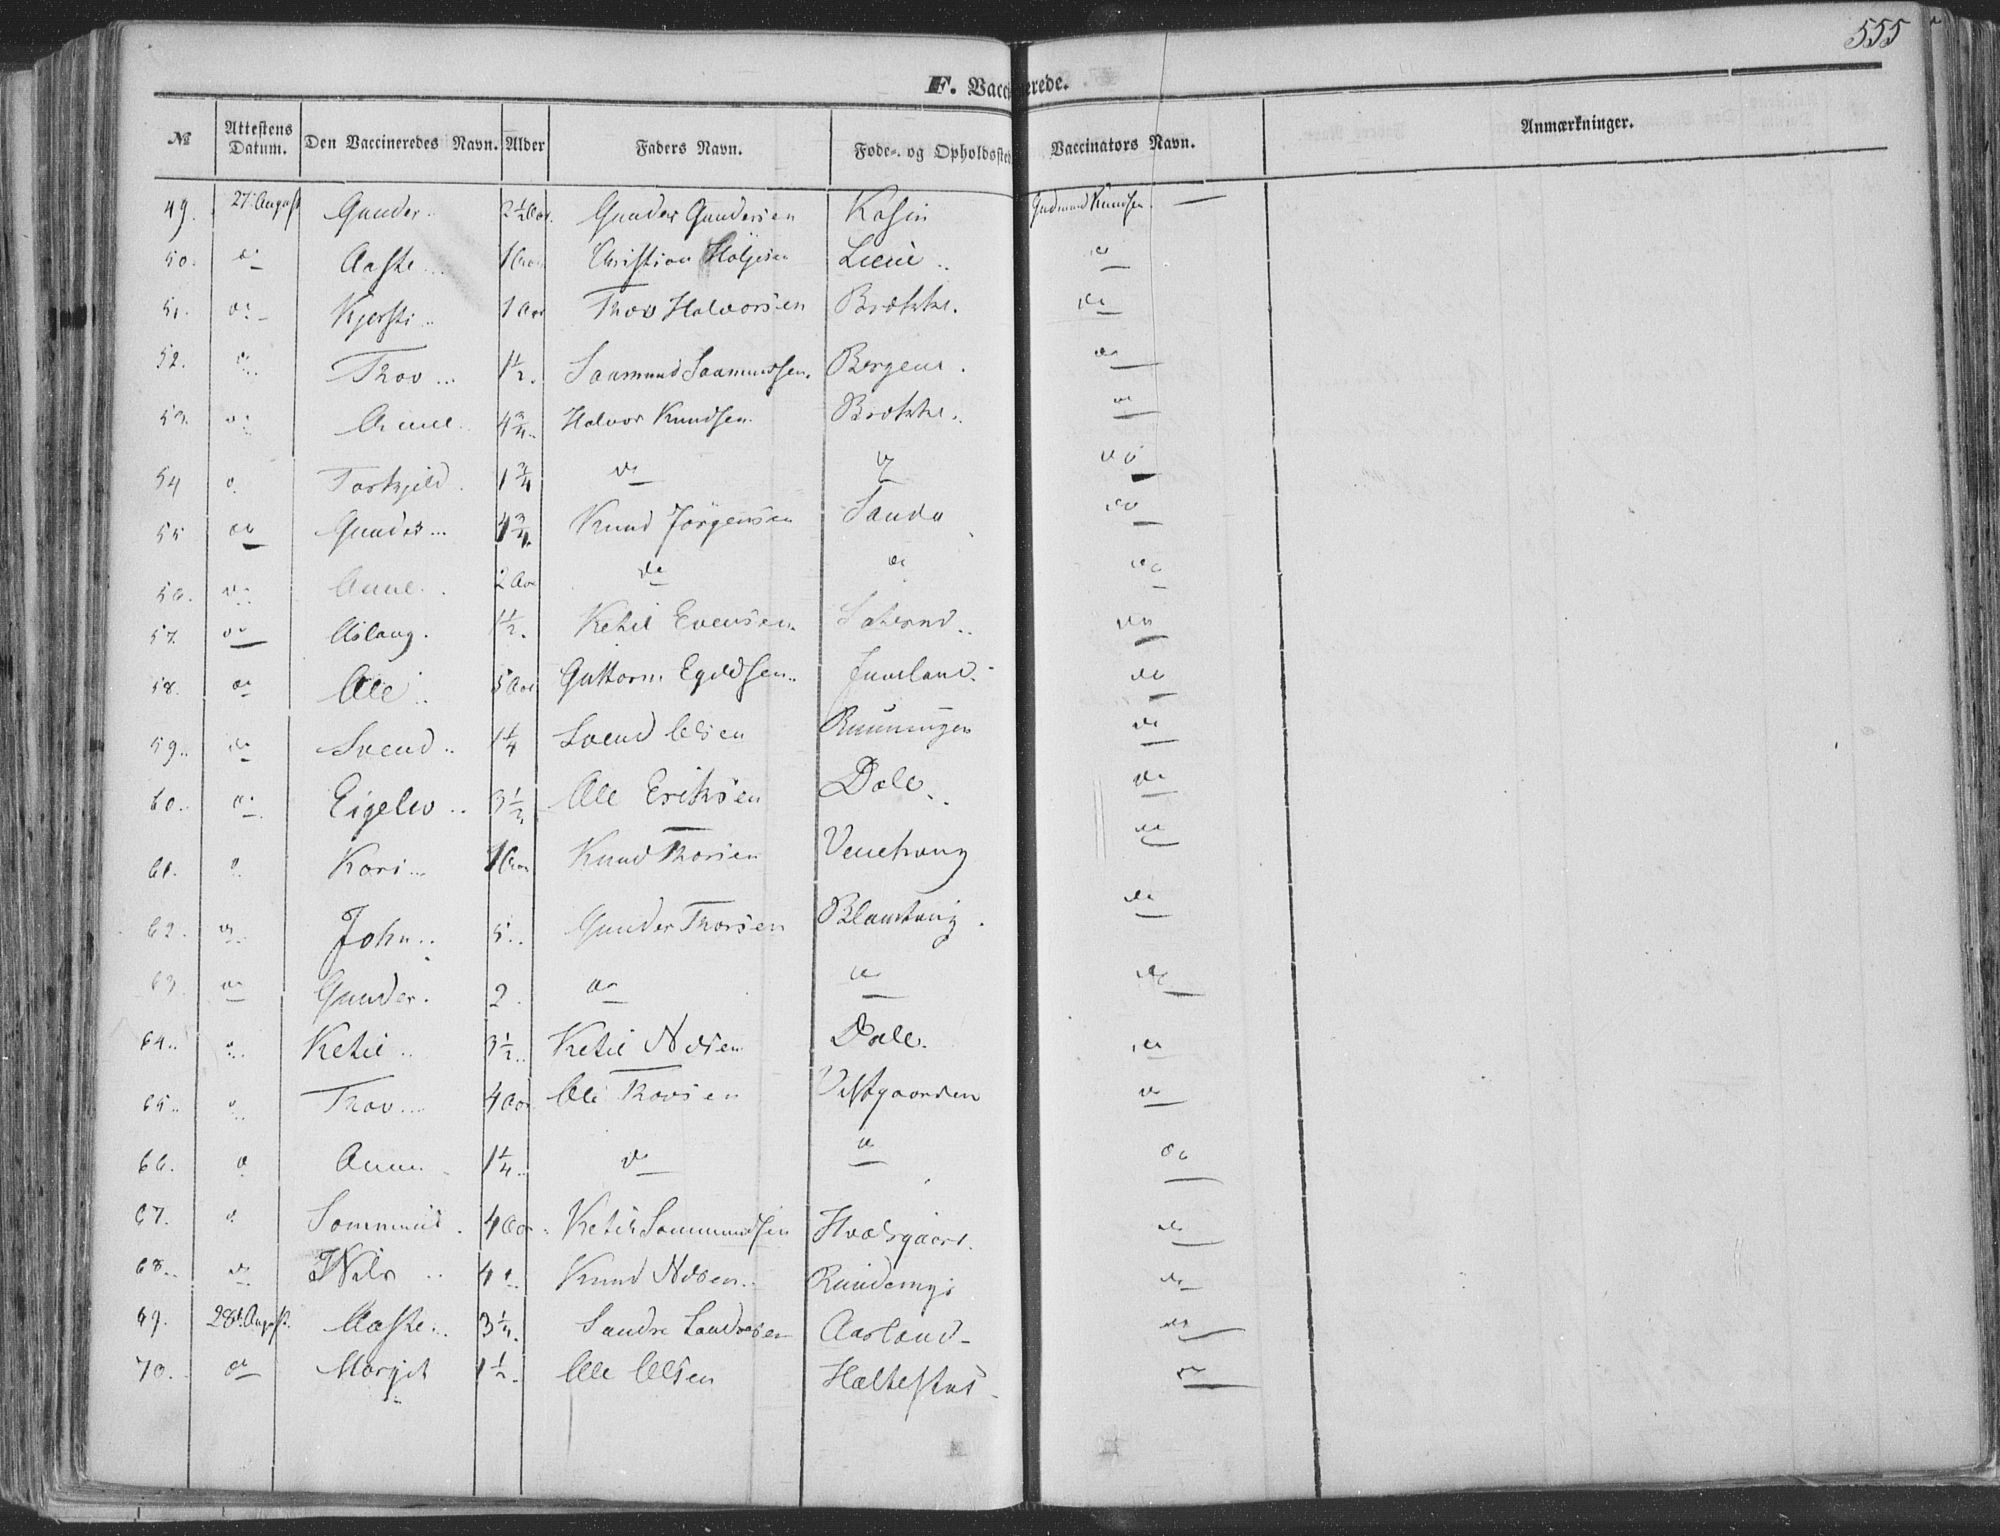 555
F. Vaccinerede.
№ Attestens Datum. Den Vaccineredes Navn. Alder Faders Navn. Føde- og Opholdssted Vaccinators Navn. Anmærkninger.
49. 27 August Gunder. 2 1/2 Aar. Gunder Gundersen Gudmund Knudsen. —
50. do Aaste 1 Aar Christian do
51. do Kjersti 1 Aar Thov Halvorsen Brokke. do
52. do Thov 1 1/2. Saamund Saamundsen. Bergene. do
53. do Anne 4 3/4. Halvor Knudsen. Brokke. do
54 do Torkjeld. 1 3/4 do do do
55 do Gunder 4 3/4. Knud Jörgensen Sanda do
56. do Anne. 2 Aar do do do
57. do Aslaug. 1 1/2. Ketil Evensen. do
58. do Ole 5 Aar Guttorm Juveland. do
59. do Svend 1 1/4 Svend Olsen do
60. do Eigelev 3 1/2 Ole Eriksen Dale do
61. do Kari 1 Aar Knud Thorsen do
62. do John 5 Gunder Thorsen do
63. do Gunder. 2. do do do
64. do Ketil 3 1/2 Ketil Nilsen Dale. do
65. do Thov 4 Aar Ole Thovsen Vestgaarden do
66. do Anne 1 1/4 do do do
67. do 4 Aar Ketil do
68. do Nils 4 Knud Nilsen do
69. 28 August. Aaste 3 1/4. Sandre Sandresen Aarland do
70. do Margit 1 1/2. Ole Olsen do